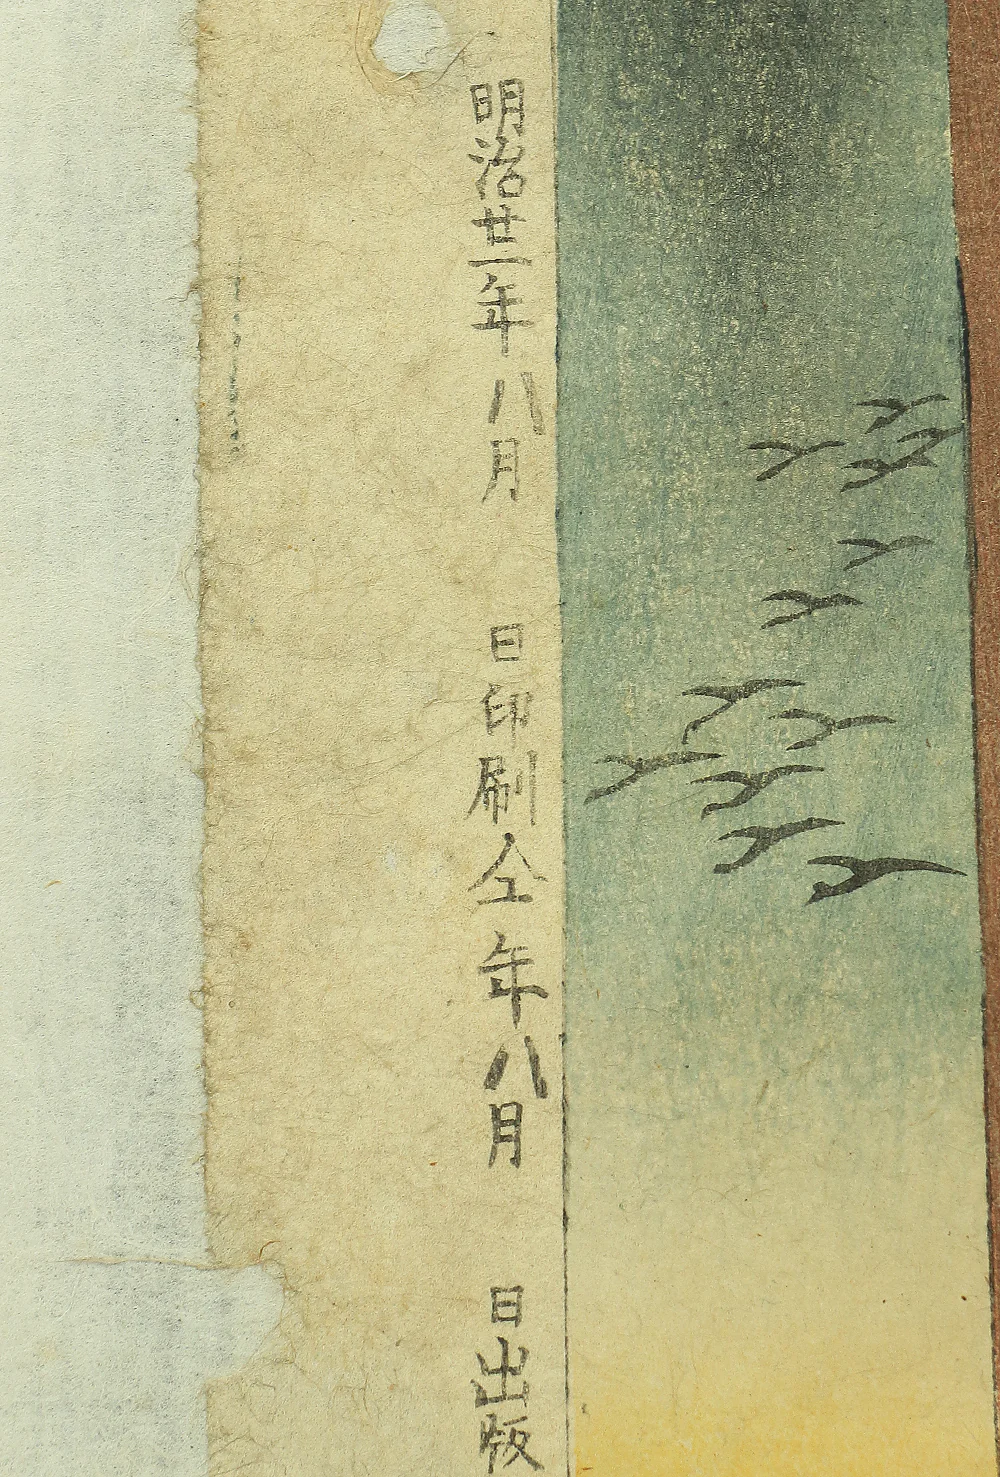 明治廿一年八月　日印刷仝年八月　日出版